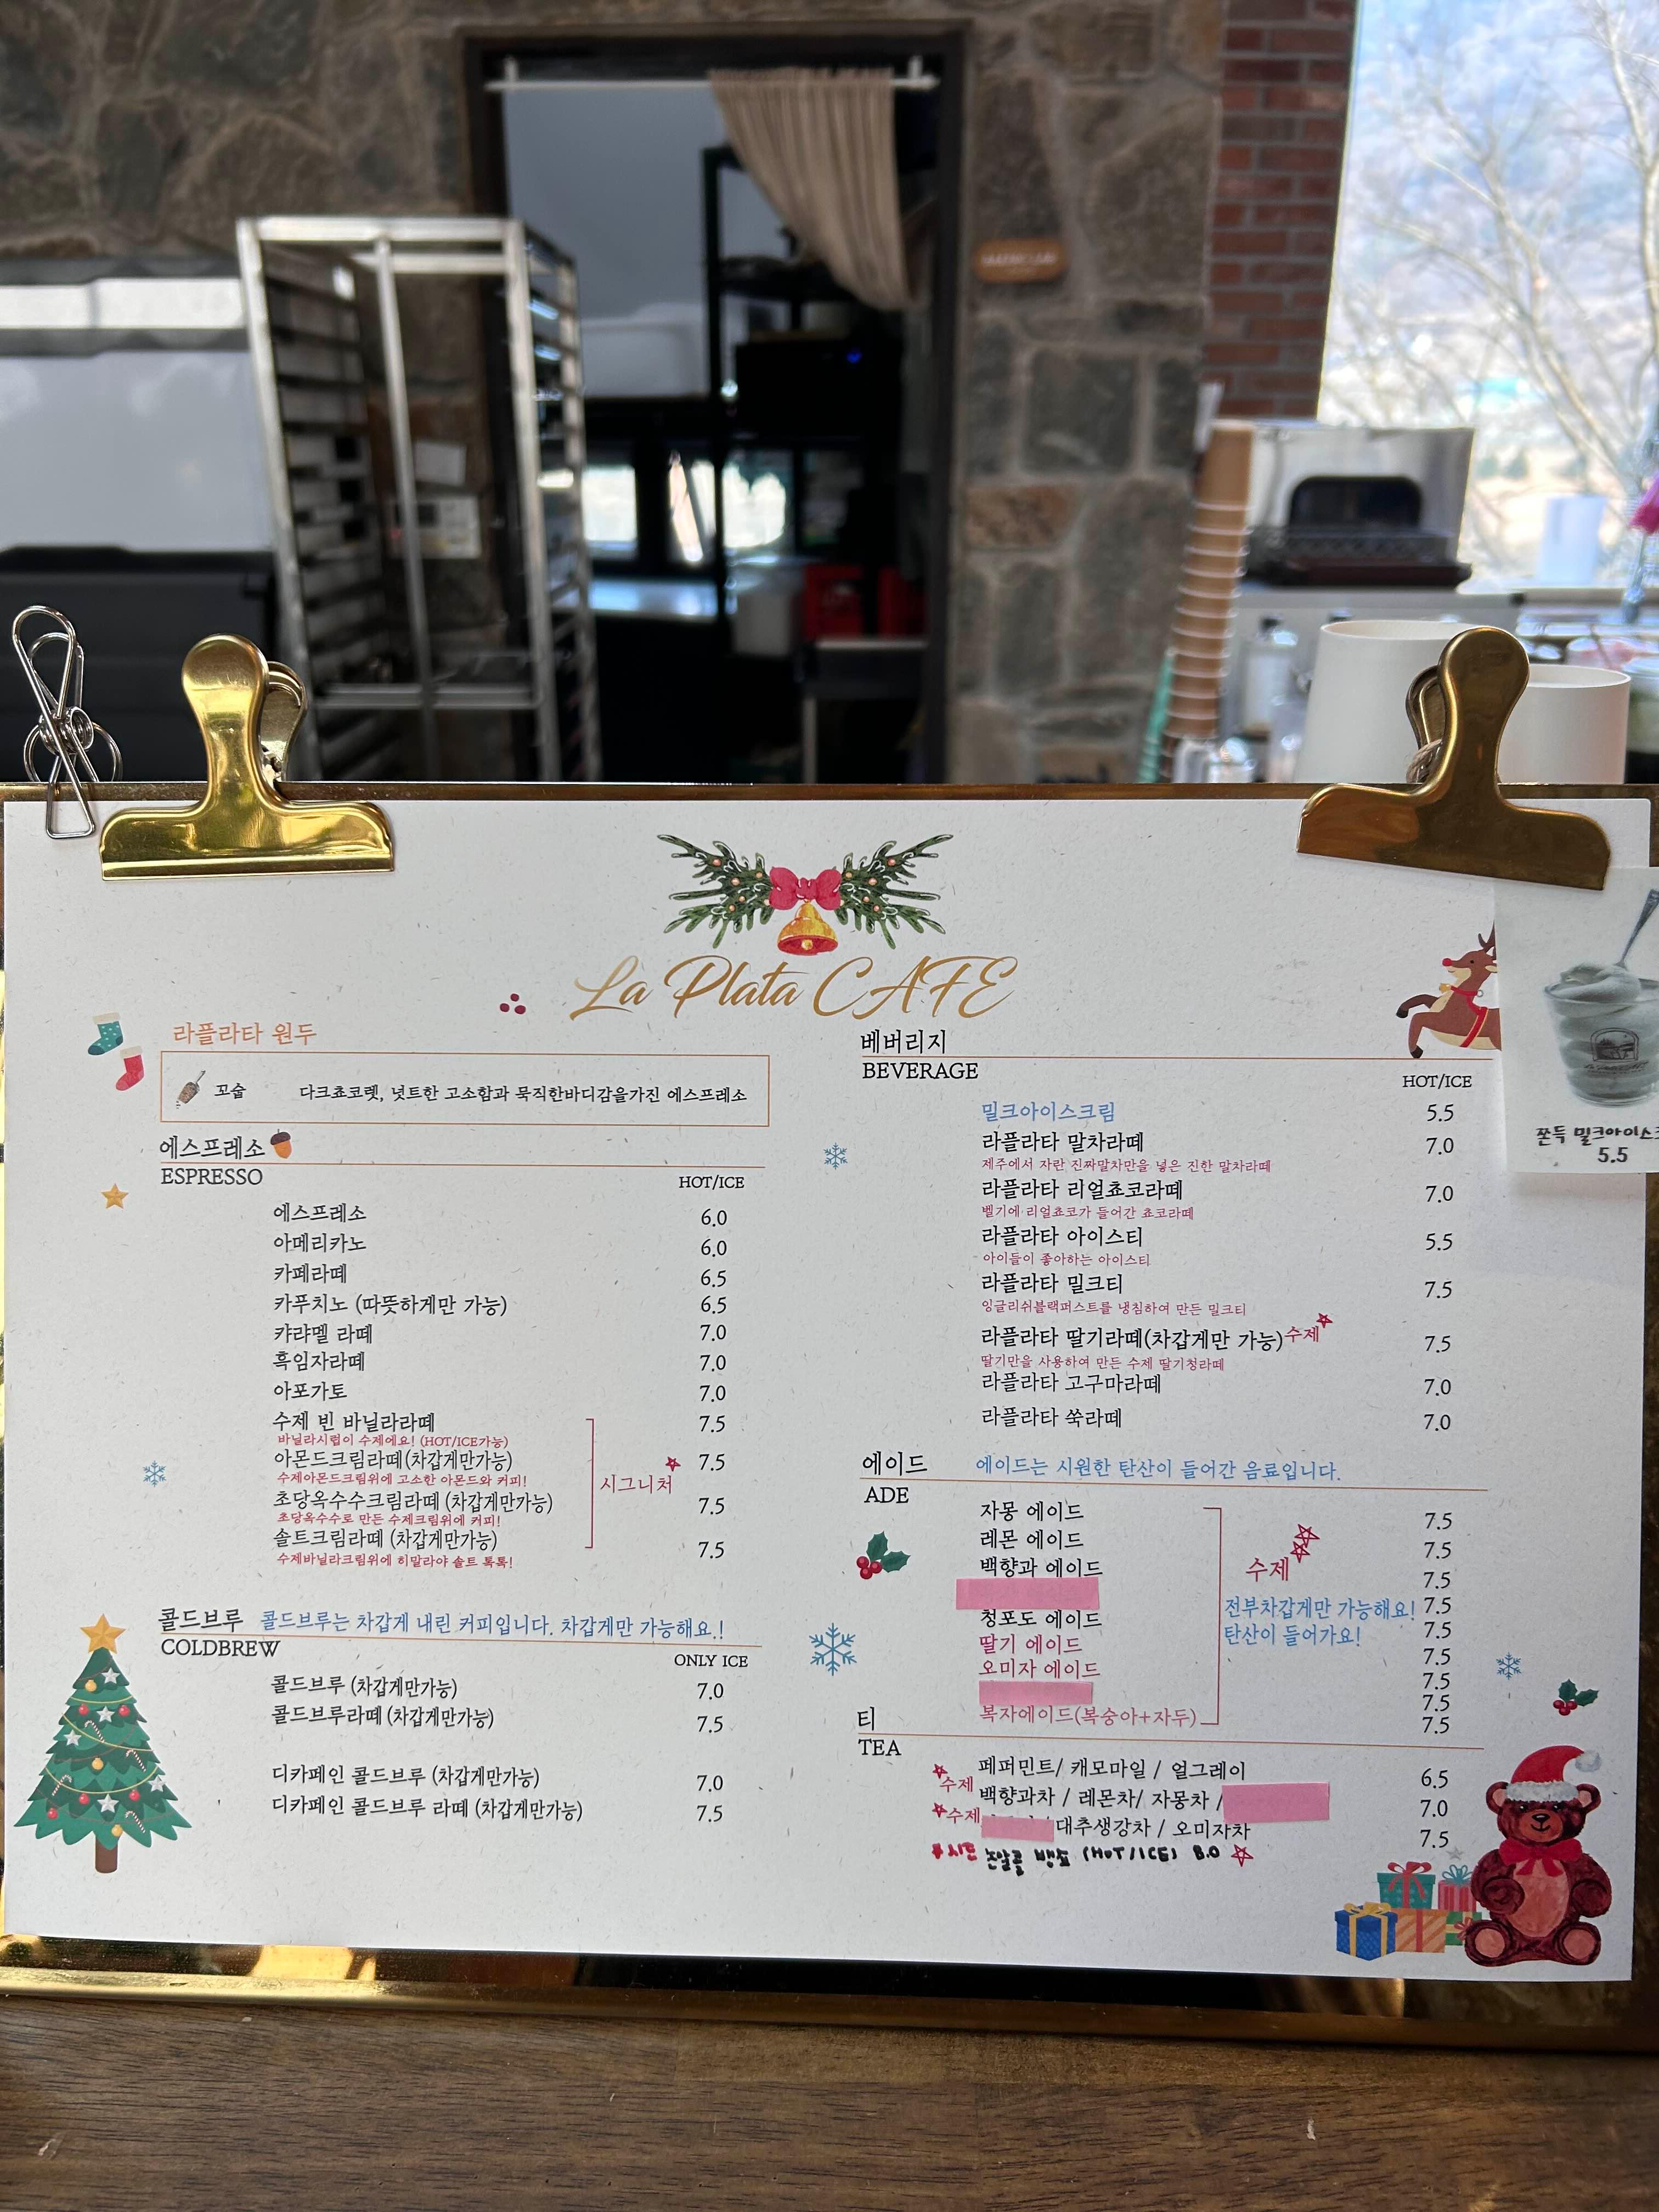 La Plata CAFE
라플라타 원두
꼬숩 다크쵸코렛, 넛트한 고소함과 묵직한바디감을가진 에스프레소
에스프레소
ESPRESSO
HOT/ICE
에스프레소 6.0
아메리카노 6.0
카페라떼 6.5
카푸치노 (따뜻하게만 가능) 6.5
캬라멜 라떼 7.0
흑임자라떼 7.0
아포가토 7.0
수제 빈 바닐라라떼 7.5
바닐라시럽이 수제에요! (HOT/ICE가능)
아몬드크림라떼(차갑게만가능) 7.5
수제아몬드크림위에 고소한 아몬드와 커피!
시그니처
초당옥수수크림라떼 (차갑게만가능) 7.5
초당옥수수로 만든 수제크림위에 커피!
솔트크림라떼 (차갑게만가능) 7.5
수제바닐라크림위에 히말라야 솔트 톡톡!
콜드브루 콜드브루는 차갑게 내린 커피입니다. 차갑게만 가능해요.!
COLDBREW
ONLY ICE
콜드브루 (차갑게만가능) 7.0
콜드브루라떼 (차갑게만가능) 7.5
디카페인 콜드브루 (차갑게만가능) 7.0
디카페인 콜드브루 라떼 (차갑게만가능) 7.5
베버리지
BEVERAGE
HOT/ICE
밀크아이스크림 5.5
라플라타 말차라떼 7.0
제주에서 자란 진짜말차만을 넣은 진한 말차라떼
라플라타 리얼쵸코라떼 7.0
벨기에 리얼쵸코가 들어간 쵸코라떼
라플라타 아이스티 5.5
아이들이 좋아하는 아이스티
라플라타 밀크티 7.5
잉글리쉬블랙퍼스트를 냉침하여 만든 밀크티
라플라타 딸기라떼(차갑게만 가능) 수제 7.5
딸기만을 사용하여 만든 수제 딸기청라떼
라플라타 고구마라떼 7.0
라플라타 쑥라떼 7.0
에이드 에이드는 시원한 탄산이 들어간 음료입니다.
ADE
자몽 에이드 7.5
레몬 에이드 7.5
백향과 에이드 7.5
수제
7.5
전부차갑게만 가능해요!
청포도 에이드 7.5
탄산이 들어가요!
딸기 에이드 7.5
오미자 에이드 7.5
7.5
복자에이드(복숭아+자두) 7.5
티
TEA
페퍼민트/ 캐모마일 / 얼그레이 6.5
수제 백향과차 / 레몬차/ 자몽차 / 7.0
수제 / 대추생강차 / 오미자차 7.5
시즌 논알콜 뱅쇼 (HOT/ICE) 8.0
쫀득 밀크아이스크
5.5